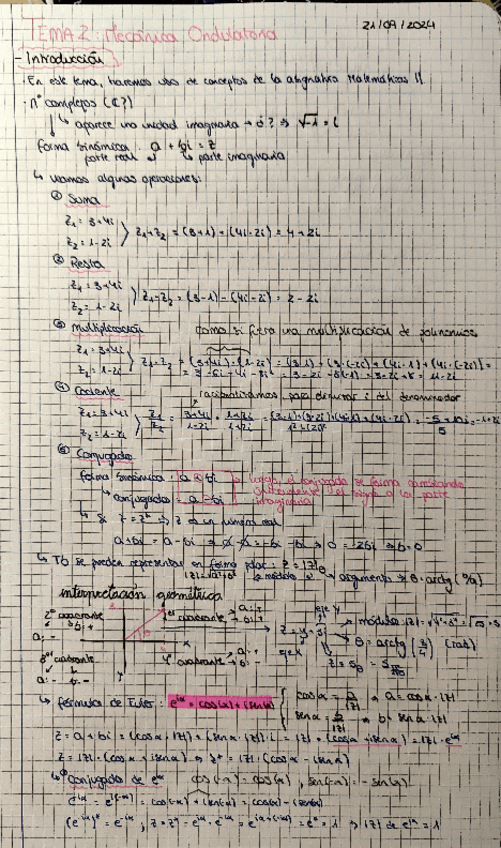 21/09/2024
TEMA 2: Mecánica Ondulatoria
- Introducción
· En este tema, haremos uso de conceptos de la asignatura Matemáticas II.
· nº complejos (C?)
↳ aparece una unidad imaginaria → i? ⇒ √-1 = i
forma binómica: a + bi = z
parte real ↲ ↳ parte imaginaria
↳ veamos algunas operaciones:
① Suma
z₁ = 3+4i
z₂ = 1-2i
z₁+z₂ = (3+1) + (4i-2i) = 4+2i
② Resta
z₁ = 3+4i
z₂ = 1-2i
z₁-z₂ = (3-1) - (4i-2i) = 2-2i
③ Multiplicación
como si fuera una multiplicación de polinomios
z₁ = 3+4i
z₂ = 1-2i
z₁·z₂ = (3+4i)·(1-2i) = (3·1) + (3·(-2i)) + (4i·1) + (4i·(-2i)) =
④ Cociente
racionalizamos para eliminar i del denominador
z₁ = 3+4i
z₂ = 1-2i
⑤ Conjugado
forma binómica: a + bi
↳ conjugado: a - bi
luego, el conjugado se forma cambiando únicamente el signo a la parte imaginaria
↳ Si z = z* ⇒ z es un número real
a+bi = a-bi ⇒ a-a = -bi-bi ⇒ 0 = -2bi ⇒ b=0
↳ Tb se pueden representar en forma polar: z = |z|θ
|z| = √a²+b² módulo argumento → θ = arctg (b/a)
interpretación geométrica
2º cuadrante
1er cuadrante
3er cuadrante
4º cuadrante
eje y
eje x
módulo
(rad)
↳ fórmulas de Euler: e^iα = cos(α) + isen(α)
cosα = a/|z| → a = cosα·|z|
senα = b/|z| → b = senα·|z|
z = a+bi = (cosα·|z|) + (senα·|z|)·i = |z|·(cosα + isenα) = |z|·e^iα
z = |z|·(cosα + isenα) ⇒ z* = |z|·(cosα - isenα)
↳ conjugado de e^iα cos(-α) = cos(α), sen(-α) = -sen(α)
e^-iα = e^i(-α) = cos(-α) + isen(-α) = cos(α) - isen(α)
(e^iα)* = e^-iα; z·z* = e^iα·e^-iα = e^iα+(-iα) = e⁰ = 1 ⇒ |z| de e^iα = 1